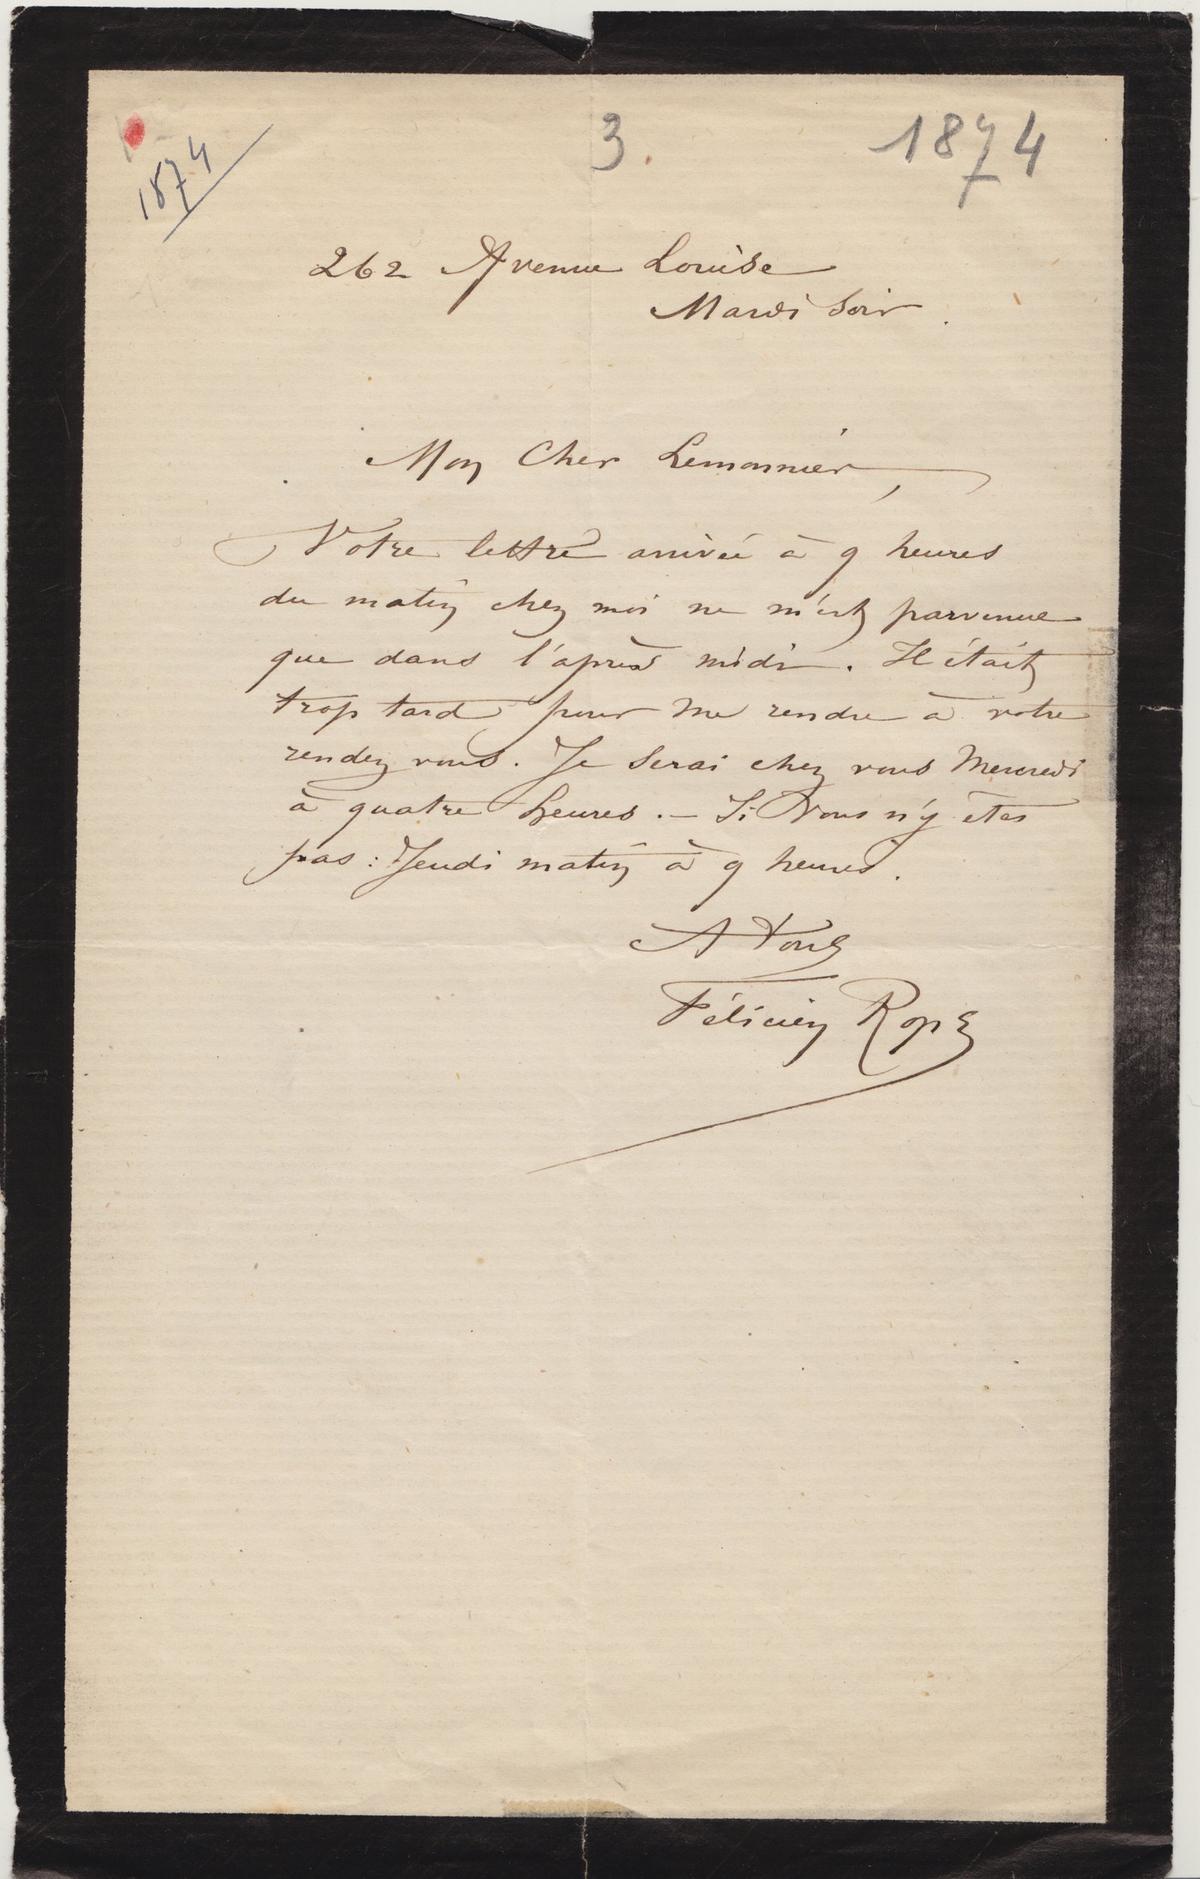 1874
3.
1874
262 Avenue Louise
Mardi Soir.
Mon Cher Lemonnier,
Votre lettre arrivée à 9 heures
du matin chez moi ne m'est parvenue
que dans l'après midi. Il était
trop tard pour me rendre à votre
rendez vous. Je serai chez vous Mercredi
à quatre heures. – Si Vous n'y êtes
pas : Jeudi matin à 9 heures.
A Vous
Félicien Rops